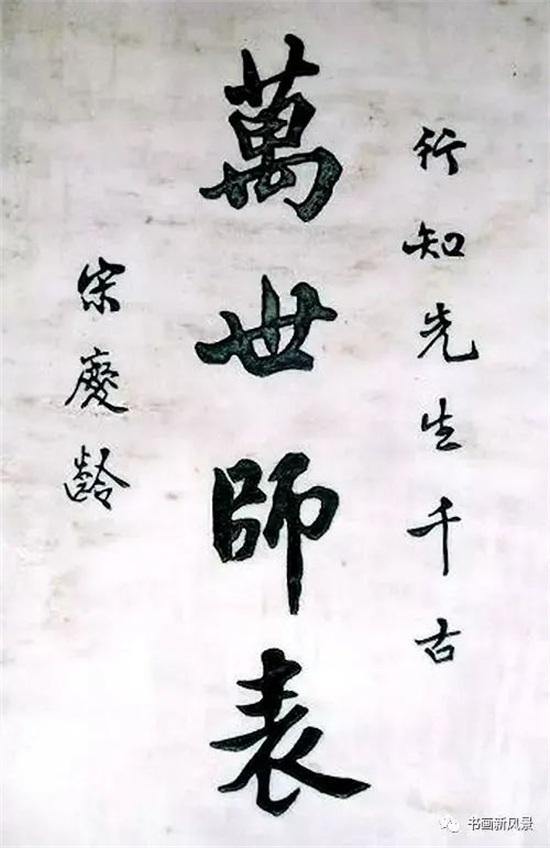 行知先生千古
萬世師表
宋慶齡
书画新风景